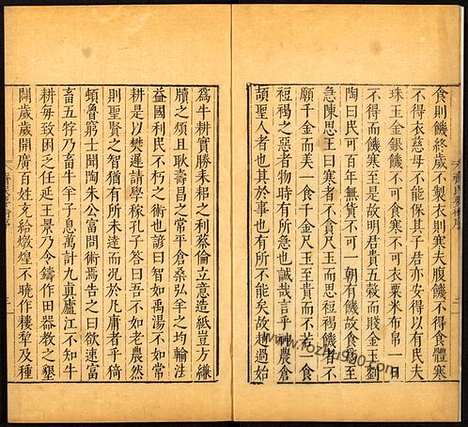 食則饑終歲不製衣則寒夫腹饑不得食體寒
不得衣慈母不能保其子君亦安得以有民夫
珠玉金銀饑不可食寒不可衣粟米布帛一日
不得而饑寒至是故明君貴五穀而賤金玉劉
陶曰民可百年無貨不可一朝有饑故食爲至
急陳思王曰寒者不貪尺玉而思裋褐饑者不
願千金而美一食千金尺玉至貴而不若一食
裋褐之惡者物時有所急也誠哉言乎神農倉
頡聖人者也其於事也有所不能矣故趙過始
爲牛耕實勝耒耜之利蔡倫立意造紙豈方縑
牘之煩且耿壽昌之常平倉桑弘羊之均輸法
益國利民不朽之術也諺曰智如禹湯不如常
耕是以樊遲請學稼孔子答曰吾不如老農然
則聖賢之智猶有所未達而況於凡庸者乎猗
頓魯窮士聞陶朱公富問術焉告之曰欲速富
畜五牸乃畜牛羊子息萬計九真廬江不知牛
耕每致困乏任延王景乃令鑄作田器教之墾
闢歲歲開廣百姓充給燉煌不曉作耬犂及種